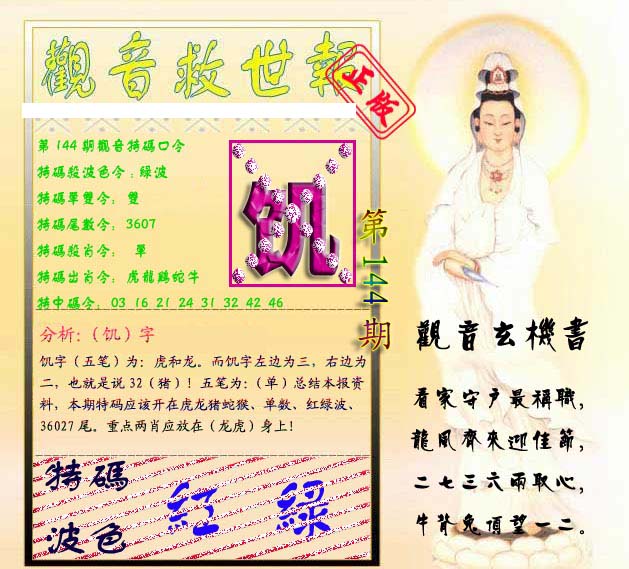 觀音救世報
正版
第144期觀音特碼口令
特碼殺波色令:綠波
特碼單雙令： 雙
特碼尾數令： 3607
特碼殺肖令： 單
特碼出肖令： 虎龍鷄蛇牛
特中碼令： 03 16 21 24 31 32 42 46
饥
第144期
分析:（饥）字
饥字（五笔）为：虎和龙。而饥字左边为三，右边为
二，也就是说32（猪）！五笔为：（单）总结本报资
料，本期特码应该开在虎龙猪蛇猴、单数、红绿波、
36027尾。重点两肖应放在（龙虎）身上！
特碼
波色
紅 綠
觀音玄機書
看家守戶最稱職，
龍鳳齊來迎佳節，
二七三六兩取心，
牛背兔頂望一二。